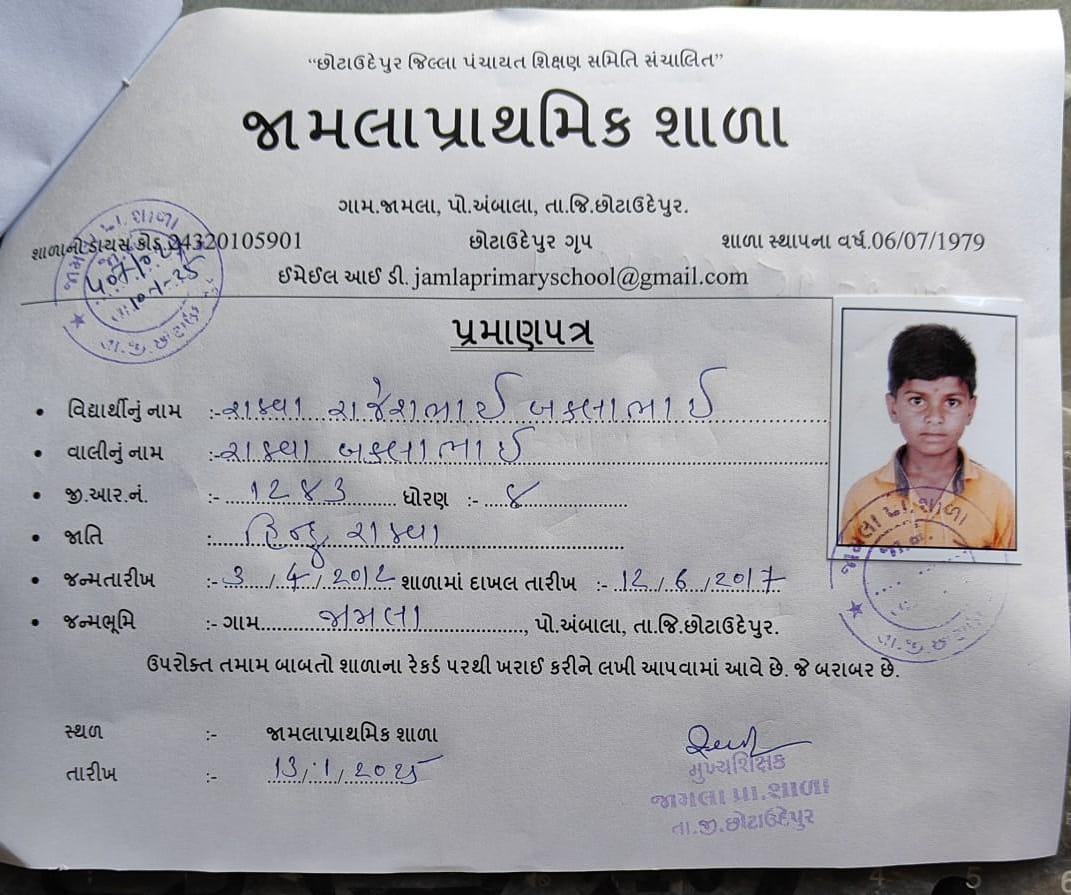 “છોટાઉદેપુર જિલ્લા પંચાયત શિક્ષણ સમિતિ સંચાલિત”
જામલાપ્રાથમિક શાળા
ગામ.જામલા, પો.અંબાલા, તા.જિ.છોટાઉદેપુર.
શાળાનો ડાયસ કોડ.24320105901 છોટાઉદેપુર ગૃપ શાળા સ્થાપના વર્ષ.06/07/1979
ઈમેઈલ આઈ ડી. jamlaprimaryschool@gmail.com
પ્રમાણપત્ર
• વિદ્યાર્થીનું નામ :- રાઠવા રાજેશભાઈ બકલાભાઈ
• વાલીનું નામ :- રાઠવા બકલાભાઈ
• જી.આર.નં. :- 1283 ધોરણ :- ૪
• જાતિ :- હિન્દુ રાઠવા
• જન્મતારીખ :- 3/4/2012 શાળામાં દાખલ તારીખ :- 12/6/2017
• જન્મભૂમિ :- ગામ જામલા, પો.અંબાલા, તા.જિ.છોટાઉદેપુર.
ઉપરોક્ત તમામ બાબતો શાળાના રેકર્ડ પરથી ખરાઈ કરીને લખી આપવામાં આવે છે. જે બરાબર છે.
સ્થળ :- જામલાપ્રાથમિક શાળા
તારીખ :- 13/1/2025
મુખ્યશિક્ષક
જામલા પ્રા.શાળા
તા.જી.છોટાઉદેપુર